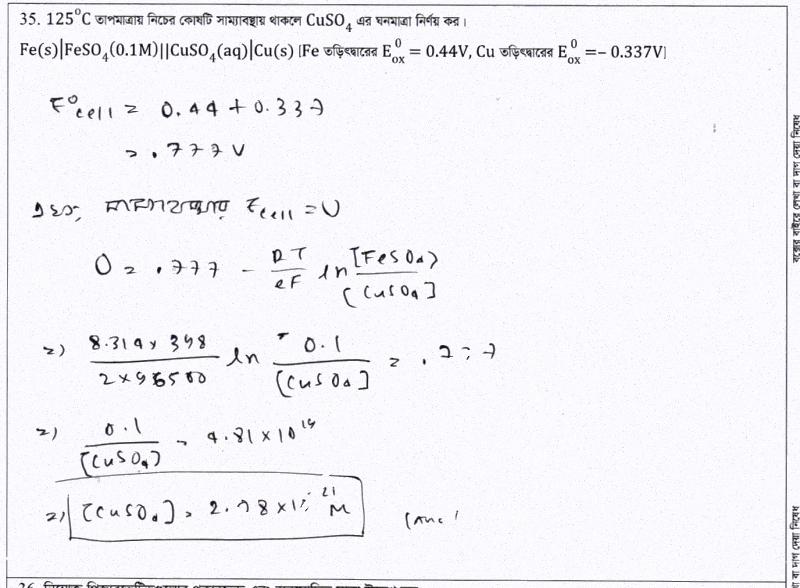 35. 125⁰C তাপমাত্রায় নিচের কোষটি সাম্যাবস্থায় থাকলে CuSO₄ এর ঘনমাত্রা নির্ণয় কর।
Fe(s)|FeSO₄(0.1M)||CuSO₄(aq)|Cu(s) [Fe তড়িৎদ্বারের E⁰ₒₓ = 0.44V, Cu তড়িৎদ্বারের E⁰ₒₓ =− 0.337V]
E⁰cell = 0.44 + 0.337
= .777 V
Ecell = 0
0 = .777 − RT/2F ln [FeSO₄]/[CuSO₄]
⇒) 8.314 × 398 / 2×96500 ln 0.1/[CuSO₄] = .777
⇒) 0.1/[CuSO₄] = 4.81×10¹⁹
⇒) [CuSO₄] = 2.08×10⁻²¹ M
বক্সের বাইরে লেখা বা দাগ দেয়া নিষেধ
বা দাগ দেয়া নিষেধ